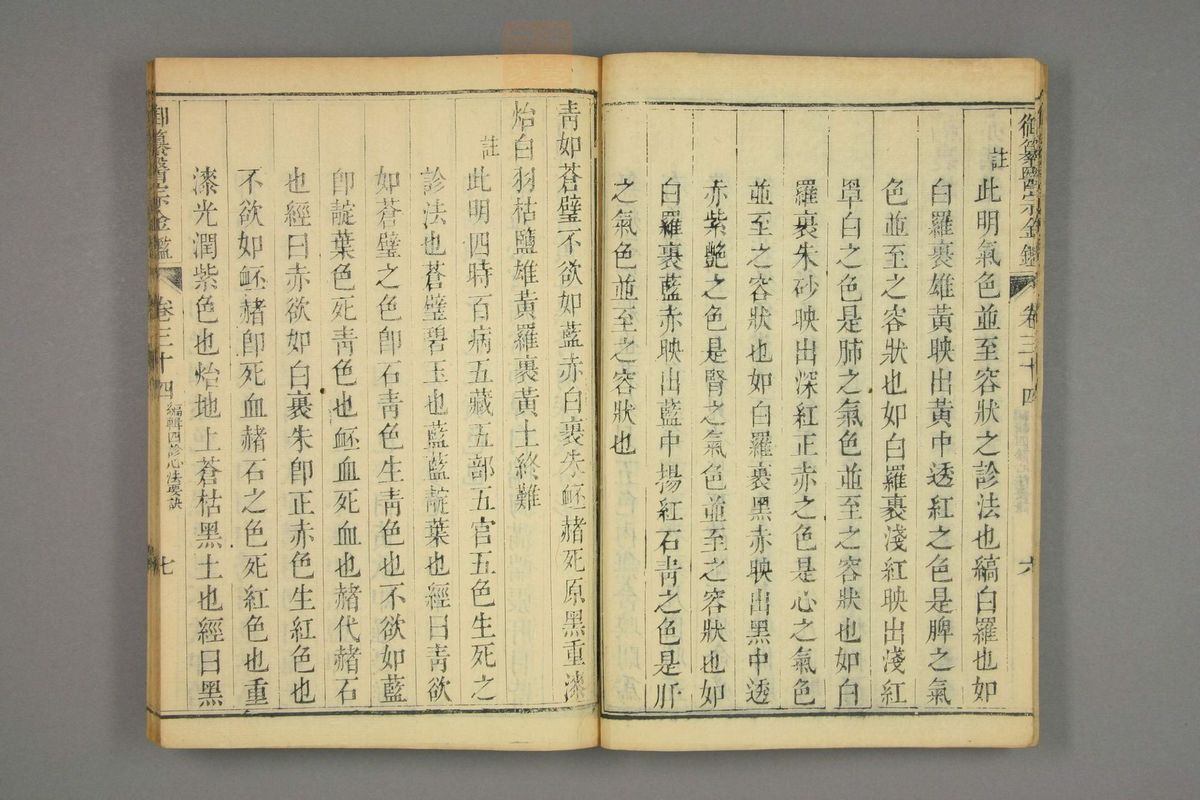 御纂醫宗金鑑 卷三十四 六
註
此明氣色並至容狀之診法也縞白羅也如
白羅裹雄黃映出黃中透紅之色是脾之氣
色並至之容狀也如白羅裹淺紅映出淺紅
罩白之色是肺之氣色並至之容狀也如白
羅裹朱砂映出深紅正赤之色是心之氣色
並至之容狀也如白羅裹黑赤映出黑中透
赤紫艷之色是腎之氣色並至之容狀也如
白羅裹藍赤映出藍中揚紅石靑之色是肝
之氣色並至之容狀也
靑如蒼璧不欲如藍赤白裹朱衃赭死原黑重漆
炲白羽枯鹽雄黃羅裹黃土終難
註
此明四時百病五藏五部五官五色生死之
診法也蒼璧碧玉也藍藍靛葉也經曰靑欲
如蒼璧之色卽石靑色生靑色也不欲如藍
卽靛葉色死靑色也衃血死血也赭代赭石
也經曰赤欲如白裹朱卽正赤色生紅色也
不欲如衃赭卽死血赭石之色死紅色也重
漆光潤紫色也炲地土蒼枯黑土也經曰黑
御纂醫宗金鑑 卷三十四 編輯四診心法要訣 七